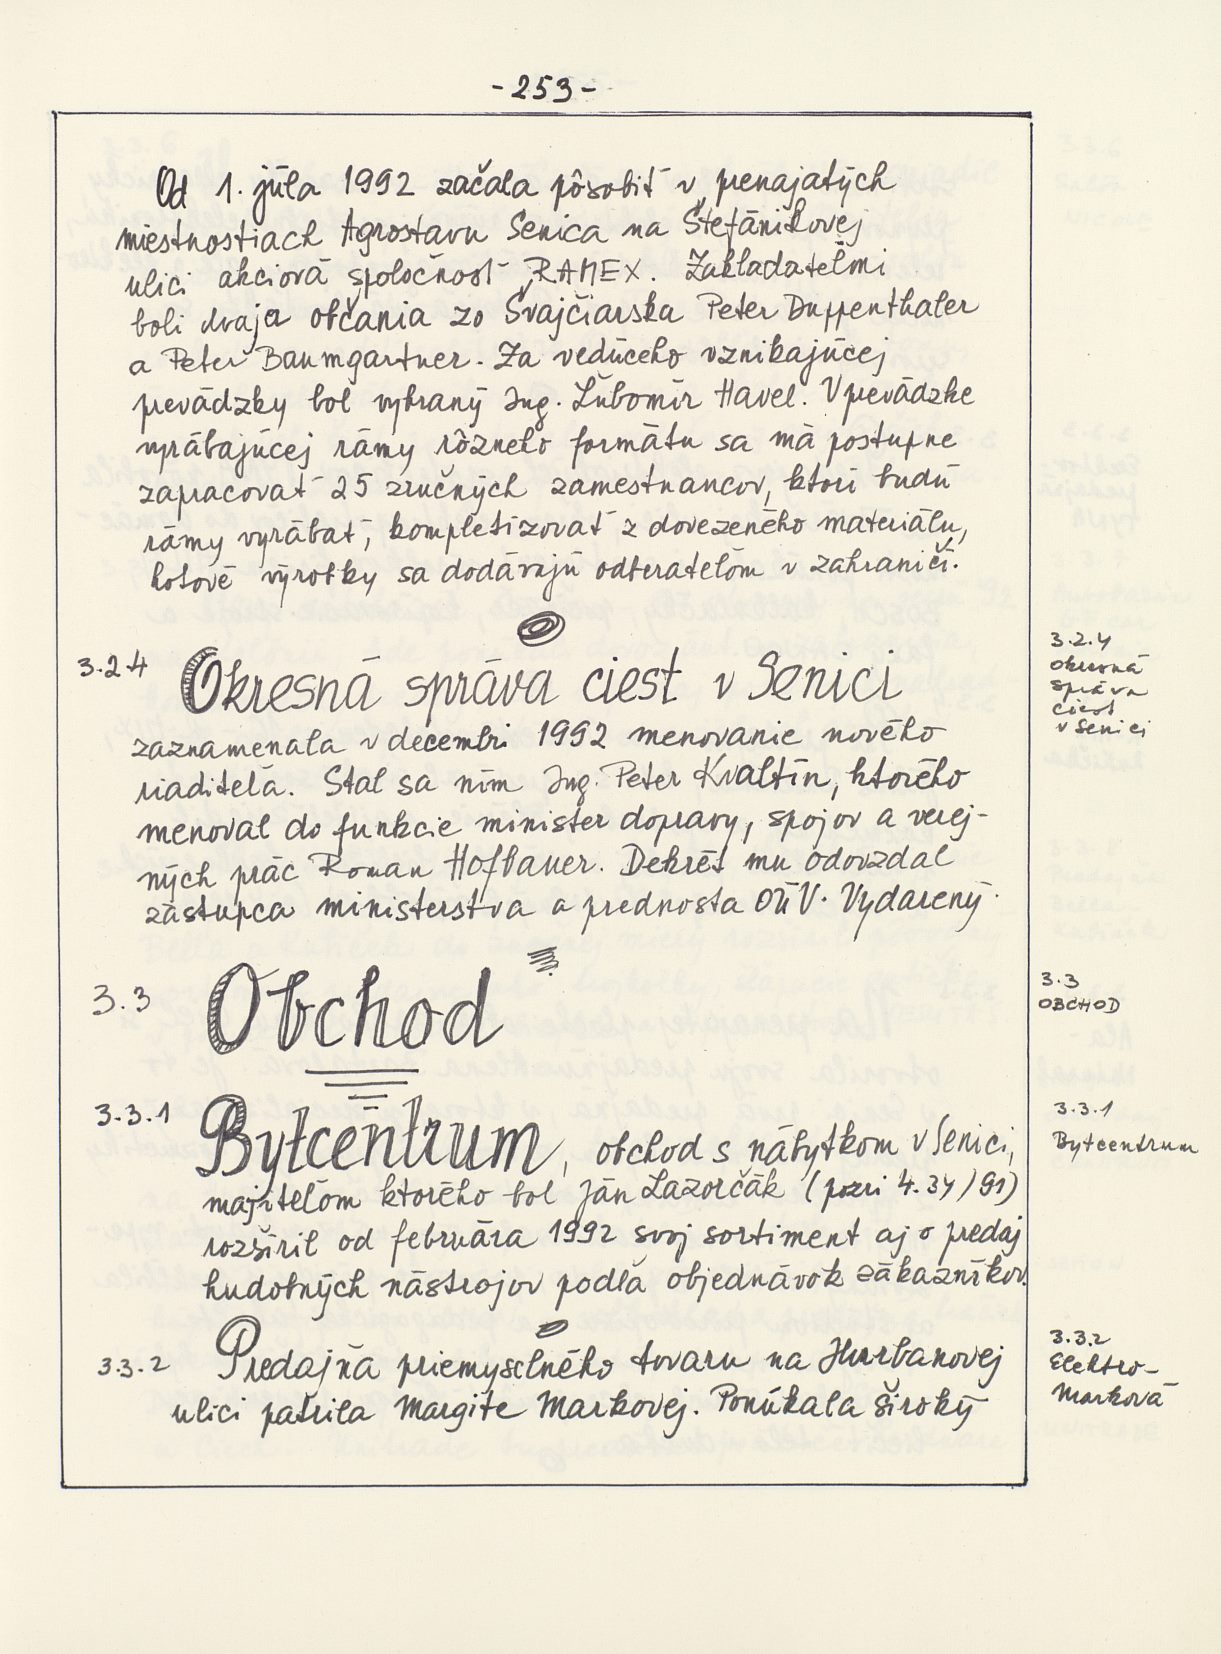 -253-
Od 1. júla 1992 začala pôsobiť v prenajatých
miestnostiach Agrostavu Senica na Štefánikovej
ulici akciová spoločnosť RAMEX. Zakladateľmi
boli dvaja občania zo Švajčiarska Peter Duppenthaler
a Peter Baumgartner. Za vedúceho vznikajúcej
prevádzky bol vybraný Ing. Ľubomír Havel. V prevádzke
vyrábajúcej rámy rôzneho formátu sa má postupne
zapracovať 25 zručných zamestnancov, ktorí budú
rámy vyrábať, kompletizovať z dovezeného materiálu,
hotové výrobky sa dodávajú odberateľom v zahraničí.
3.2.4 Okresná správa ciest v Senici
zaznamenala v decembri 1992 menovanie nového
riaditeľa. Stal sa ním Ing. Peter Kvaltín, ktorého
menoval do funkcie minister dopravy, spojov a verej-
ných prác Roman Hofbauer. Dekrét mu odovzdal
zástupca ministerstva a prednosta OÚV. Vydarený.
3.2.4
Okresná
správa
ciest
v Senici
3.3 Obchod
3.3
OBCHOD
3.3.1 Bytcentrum, obchod s nábytkom v Senici,
majiteľom ktorého bol Ján Lazorčák (pozri 4.34/91)
rozšíril od februára 1992 svoj sortiment aj o predaj
hudobných nástrojov podľa objednávok zákazníkov.
3.3.1
Bytcentrum
3.3.2 Predajňa priemyselného tovaru na Hurbanovej
ulici patrila Margite Markovej. Ponúkala široký
3.3.2
Elektro-
Marková